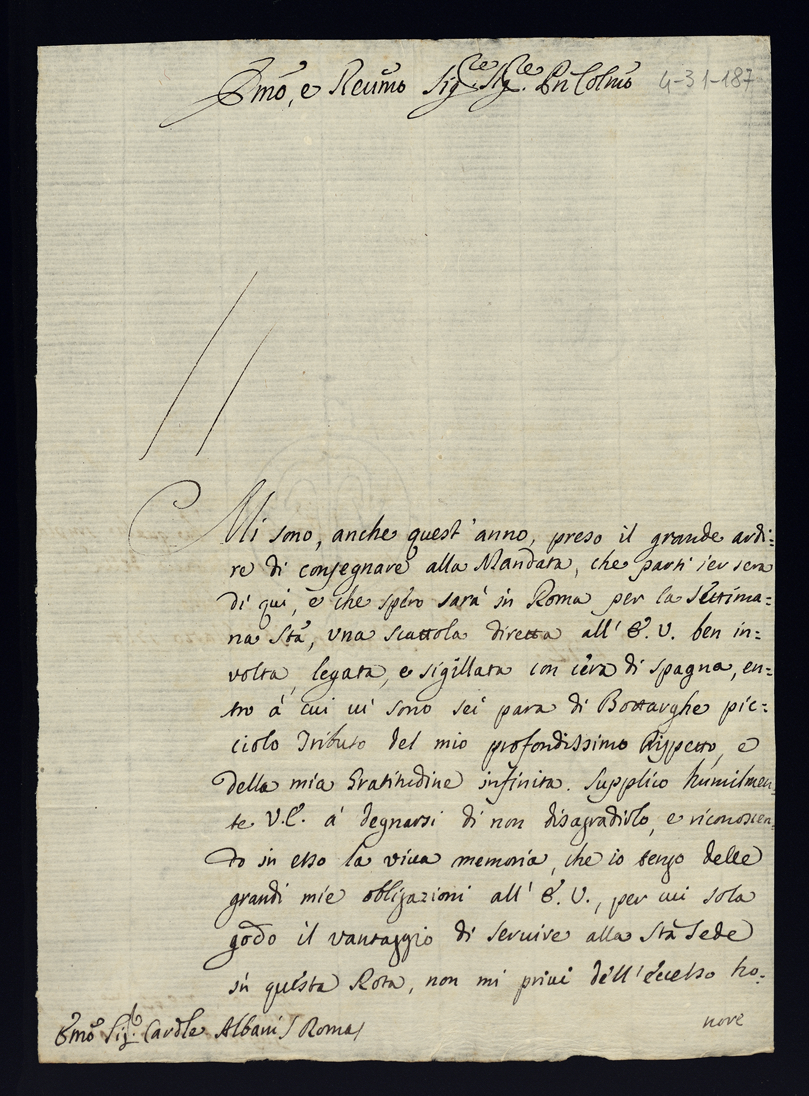 Emo, e Reumo Sig.re Sig.re Pñ Colmo 4-31-187
Mi sono, anche quest'anno, preso il grande ardi:
re di consegnare alla Mandata, che parti ier sera
di qui, e che spero sarà in Roma per la settima:
na Stã, una scattola diretta all'E. V. ben in:
volta, legata, e sigillata con cera di spagna, en:
tro à cui ui sono sei para di Bottarghe pic:
ciolo Tributo del mio profondissimo Rispetto, e
della mia Gratitudine infinita. Supplico humilmen:
te V.E. à degnarsi di non disagradirlo, e riconoscen:
do in esso la viua memoria, che io tengo delle
grandi mie obligazioni all'E. V., per cui sola
godo il vantaggio di seruire alla Stã Sede
in questa Rota, non mi priui dell'eccelso ho:
nore
Emo Sig.r Cardle Albani / Roma /